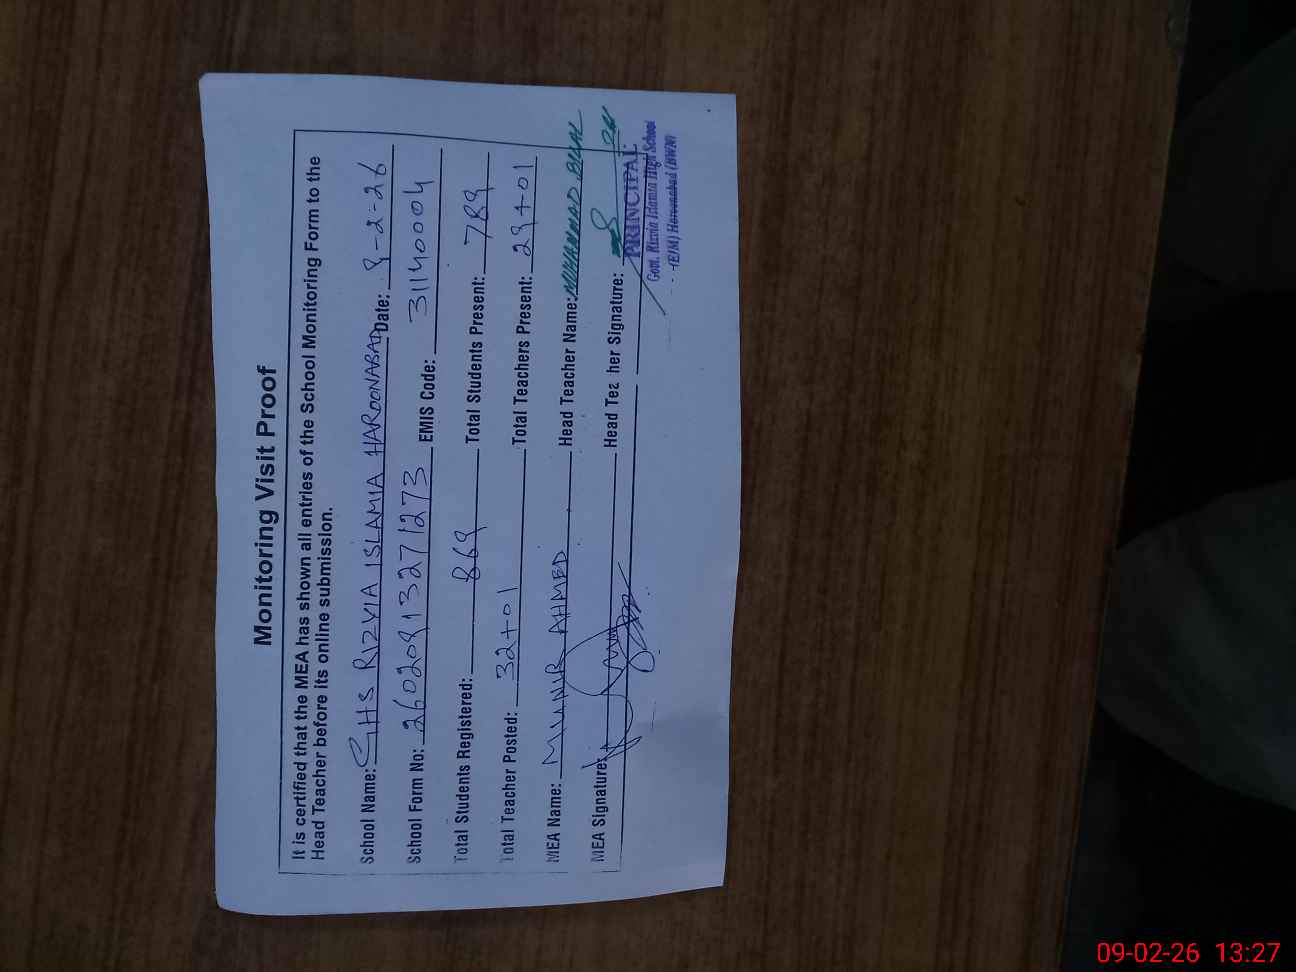 Monitoring Visit Proof
It is certified that the MEA has shown all entries of the School Monitoring Form to the
Head Teacher before its online submission.
School Name: GHS RIZVIA ISLAMIA HAROONABAD Date: 9-2-26
School Form No: 26020913271273 EMIS Code: 31140004
Total Students Registered: 869 Total Students Present: 789
Total Teacher Posted: 32+01 Total Teachers Present: 29+01
MEA Name: MUNIR AHMED Head Teacher Name: MUHAMMAD BILAL
MEA Signature: Head Teacher Signature:
PRINCIPAL
Govt. Rizvia Islamia High School
(E/M) Haroonabad (BWN)
09-02-26 13:27